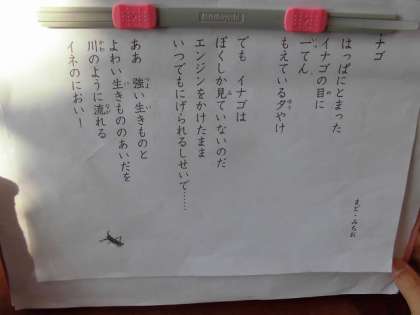 イナゴ
まど・みちお
はっぱにとまった
イナゴの目に
一てん
もえている夕やけ
でも イナゴは
ぼくしか見ていないのだ
エンジンをかけたまま
いつでもにげられるしせいで……
ああ 強い生きものと
よわい生きもののあいだを
川のように流れる
イネのにおい！